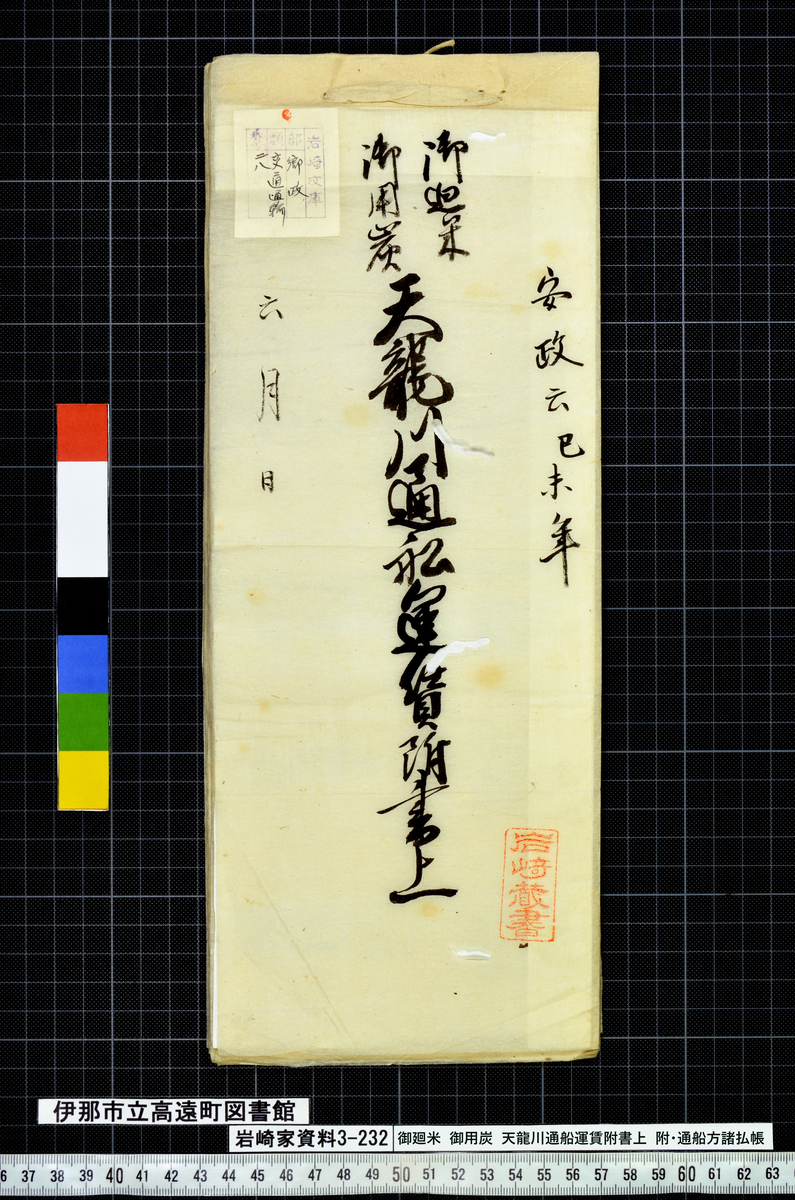 安政六己未年
御廻米
御用炭
天龍川通舩運賃附書上
六月日
岩崎蔵書
岩崎文庫
部 郷政
類 交通運輸
伊那市立高遠町図書館
岩崎家資料3-232
御廻米 御用炭 天龍川通船運賃附書上 附・通船方諸払帳
6 37 38 39 40 41 42 43 44 45 46 47 48 49 50 51 52 53 54 55 56 57 58 59 60 61 62 63